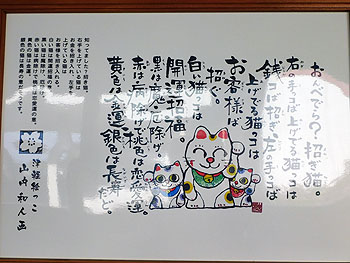 おんべでら？招き猫。
右の手っコば上げでる猫っコは
銭っコば招ぎ、左の手っコば
上げでる猫っコは
お客様ば
招ぐ。
白い猫っコは
開運招福、
黒は魔除げ厄除げ、
赤は病除げ、桃色は恋愛運。
黄色は金運、銀色は長寿だど。
知ってましたか？招き猫。
右手を上げている猫は
お金を招き入れ、左手を
上げている猫は
お客様を招き入れる。
白い猫は開運招福の意
黒い猫は魔除け、厄除け。
赤い猫は病除けで桃色は恋愛運の意。
黄色の猫は金運の意
銀色の猫は長寿の意だそうです。
津軽絵っこ
山崎和人画